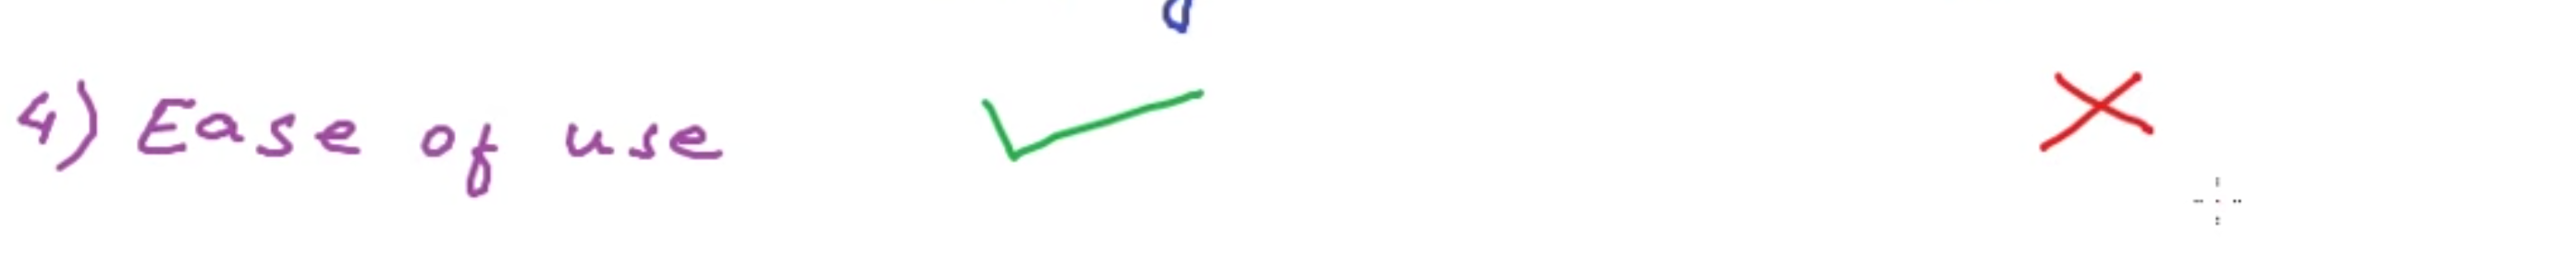 4) Ease of use ✓ ✗